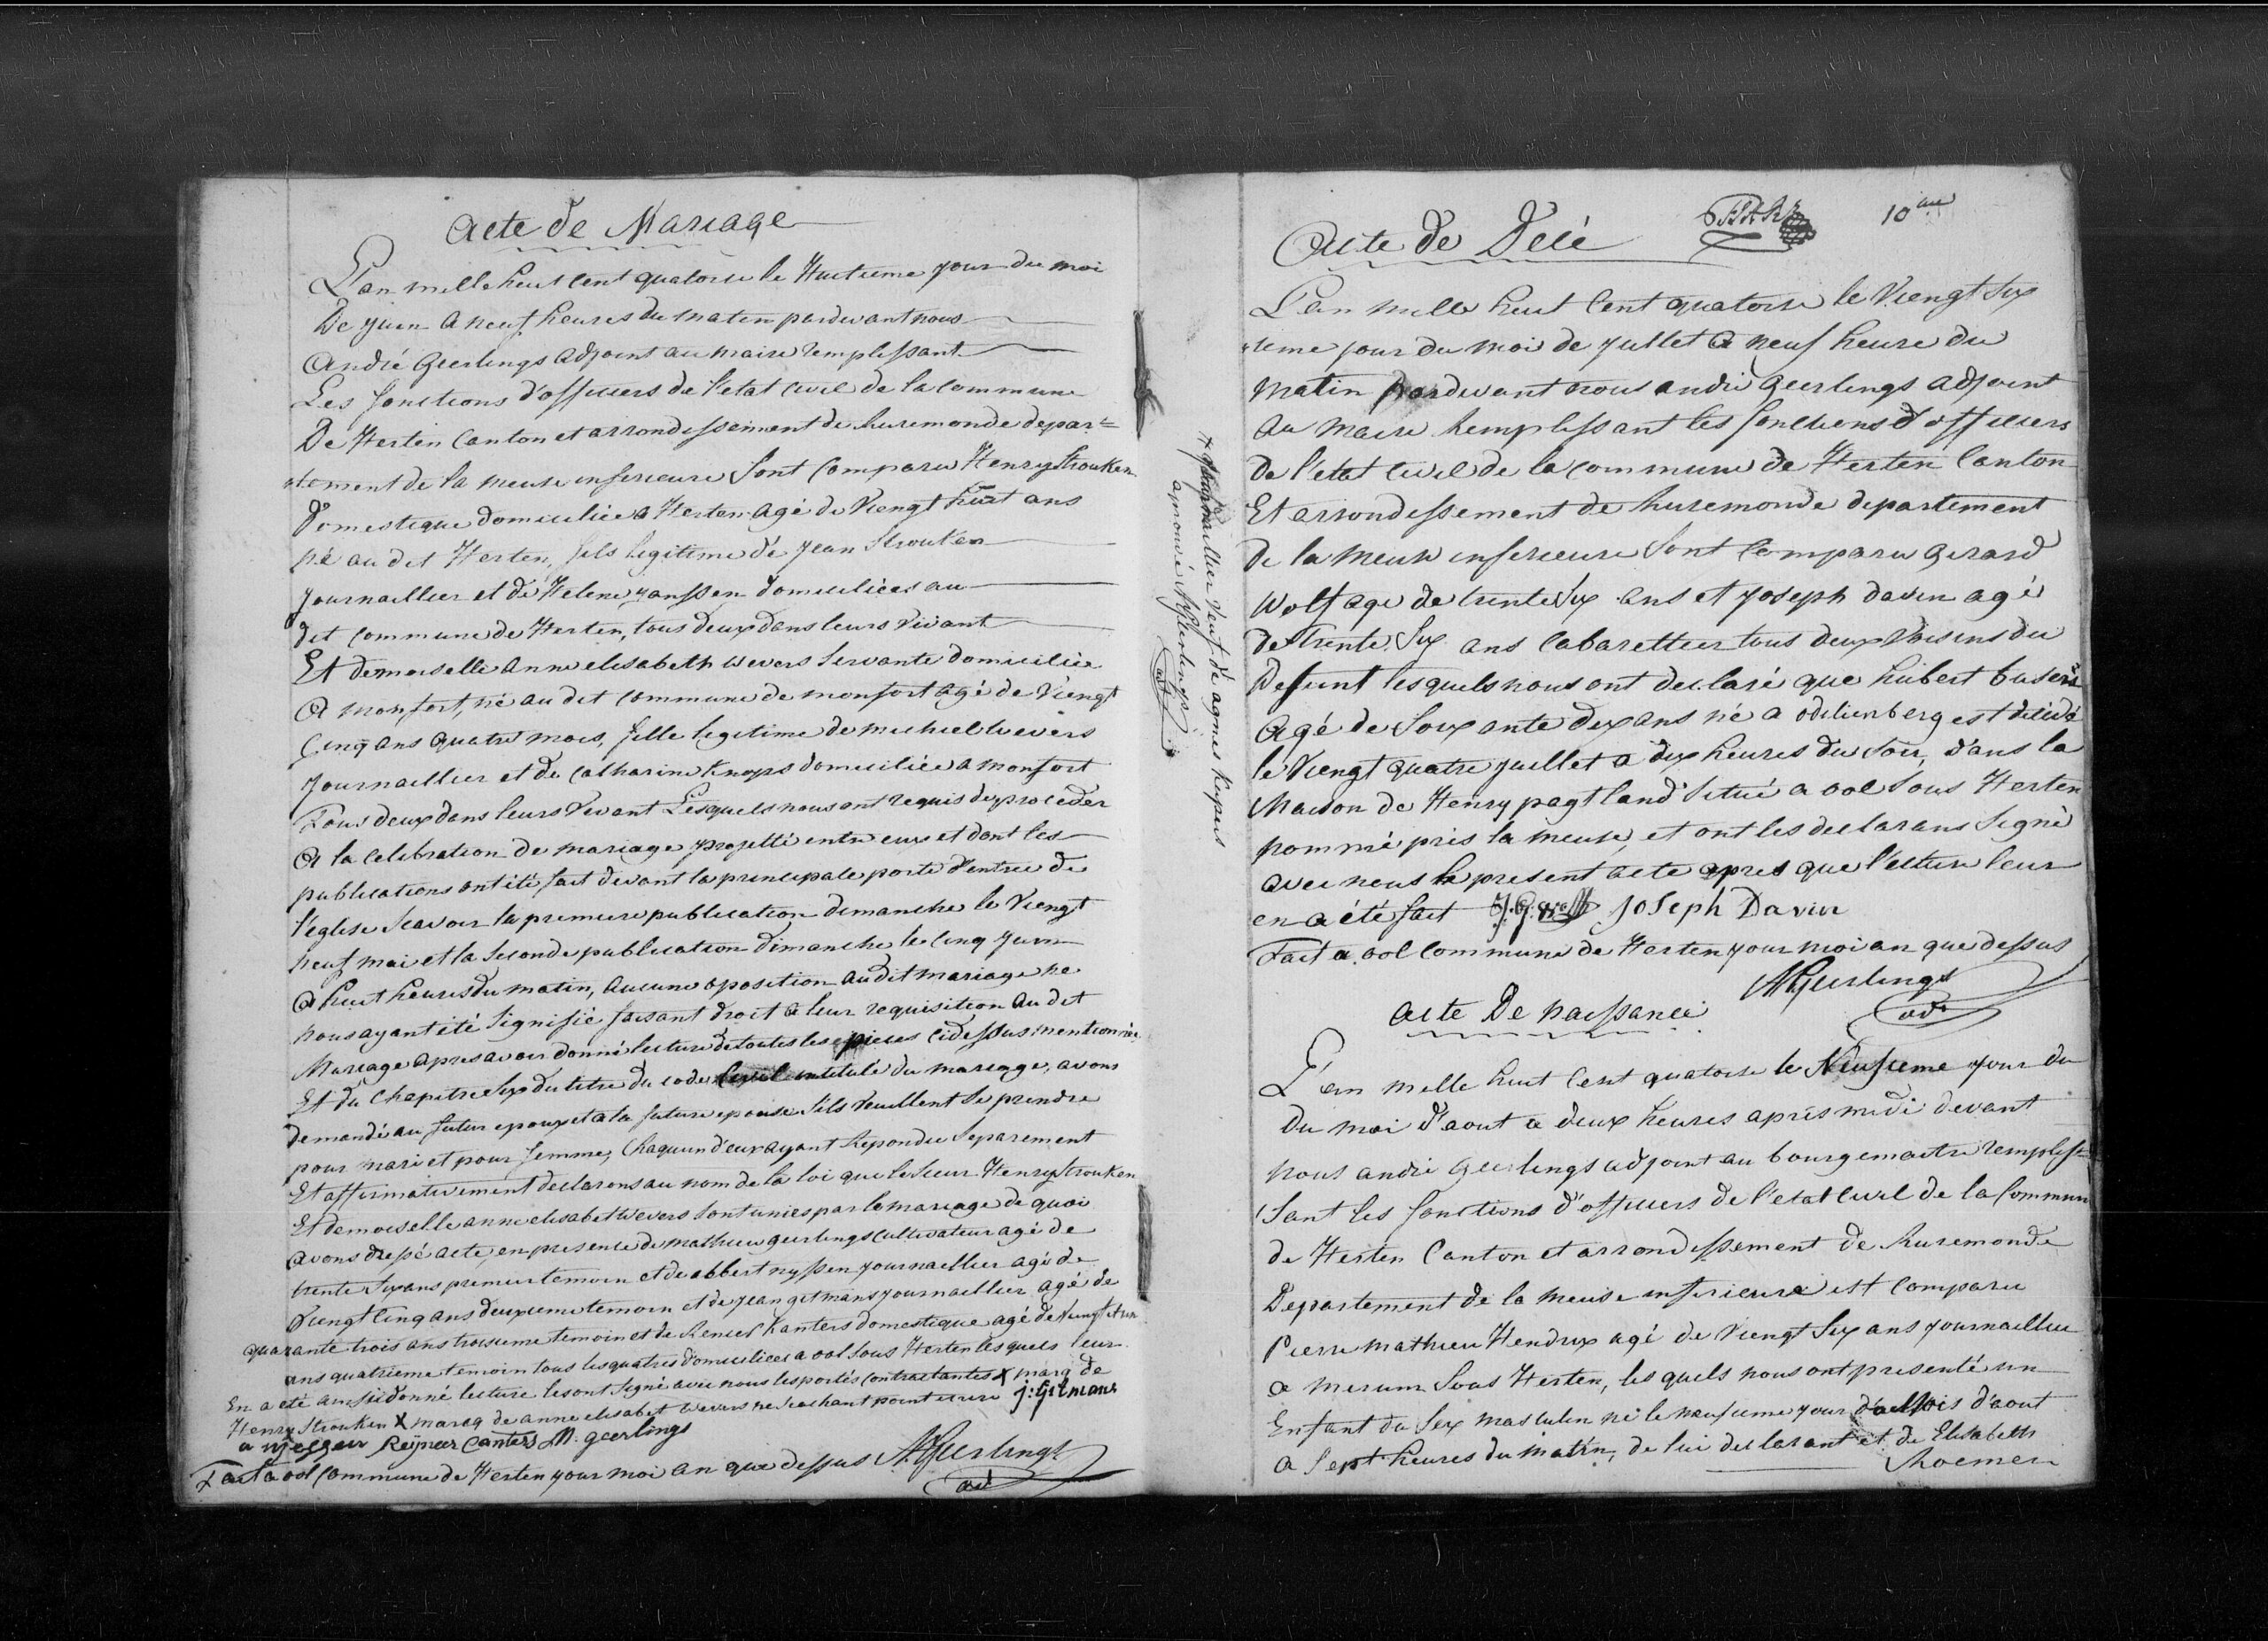 Acte de Mariage
L'an mille huit cent quatorse le Huitieme jour du moi
De juin a neuf heures du matin pardevant nous
André Geerlings adjoint au maire remplissant
Les fonctions d'officiers de l'etat civil de la commune
De Herten Canton et arrondissement de Ruremonde depar=
tement de la meuse inferieure sont comparu Henry Strouken
Domestique domiciliée a Herten agé de Viengt huit ans
né au dit Herten, fils legitime de Jean Strouken
Journaillier et de Helene Janssen domiciliées au
dit commune de Herten, tous deux dans leurs vivant
Et demoiselle anne elisabeth wevers servante domiciliée
A monfort, né au dit commune de monfort agé de Viengt
Cinq ans quatre mois, fille legitime de michiel wevers
Journaillier et de Catharine Knops domiciliée a monfort
Tous deux dans leurs vivant Lesquels nous ont requis de proceder
A la celebration de mariage projetté entre eux et dont les
publications ont été fait devant la principale porte d'entree de
l'eglise Scavoir la premiere publication dimanche le Viengt
neuf mai et la seconde publication dimanche le cinq Juin
a huit heures du matin, aucune oposition audit mariage ne
nous ayant été signifié faisant droit a leur requisition au dit
Mariage apres avoir donné lecture de toutes les pieces cidessus mentionnée
Et du Chapitre six du titre du code Civil intitulé du mariage, avons
demandé au futur epoux et a la future epouse s'ils veuillent se prendre
pour mari et pour femme, Chaquun d'eux ayant repondu Separement
Et affirmativement declarons au nom de la loi que le sieur Henry Strouken
Et demoiselle anne elisabet wevers sont unies par le mariage de quoi
avons dressé acte, en presence de mathieu geerlings cultivateur agé de
trente six ans premier temoin et de albert nyssen journaillier agé de
Viengt cinq ans deuxieme temoin et de Jean gitmans journaillier agé de
quarante trois ans troisieme temoin et de Renier Kanters domestique agé de
ans quatrieme temoin tous les quatres domiciliées a ool sous Herten lesquels leur
En a eté aussi donné lecture les ont signé avec nous les portés contractantes X marq de
Henry Strouken X marcq de anne elisabet wevers ne scachant point ecrire J: Gitmans
Reijneer Canters M. geerlings
Fait a ool Commune de Herten jour moi an que dessus AGeerlings
adt
Journaillier veuf de agnes
aprouvé AGeerlings
adt
10 me
Acte de Decé
L'an mille huit Cent quatorse le Viengt six
ieme jour du moi de Jullet a neuf heure du
matin pardevant nous andré Geerlings adjoint
Au maire remplissant les fonctions d'officiers
de l'etat civil de la commune de Herten Canton
Et arrondissement de Ruremonde departement
de la meuse inferieure sont comparu Gerard
Wolf age de trente six ans et Joseph daven agé
de trente six ans Cabarettier tous deux voisins du
Defunt lesquels nous ont declaré que hubert
Agé de Soixante dix ans né a odilienberg est decedé
le Viengt quatre juillet a dix heures du soir, dans la
Maison de Henry pagtland situé a ool sous Herten
nommé près la meuse, et ont les declarans signé
avec nous le present acte apres que l'ecture leur
en a été fait Joseph Davin
Fait a ool commune de Herten jour moi an que dessus
AGeerlings
adt
Acte De naissance
L'an mille huit Cent quatorse le Neufieme jour du
du moi d'aout a deux heures après midi devant
nous andré Geerlings adjoint au bourgemaitre rempliss=
sant les fonctions d'officiers de l'etat civil de la Commune
de Herten Canton et arrondissement de Ruremonde
Departement de la meuse inferieure est comparu
Pierre mathieu Hendrix agé de Viengt six ans journaillier
a merum sous Herten, lesquels nous ont presenté un
Enfant du sex masculin né le neufieme jour d'aout
a sept heures du matin, de lui declarant et de Elisabeth
Roemen